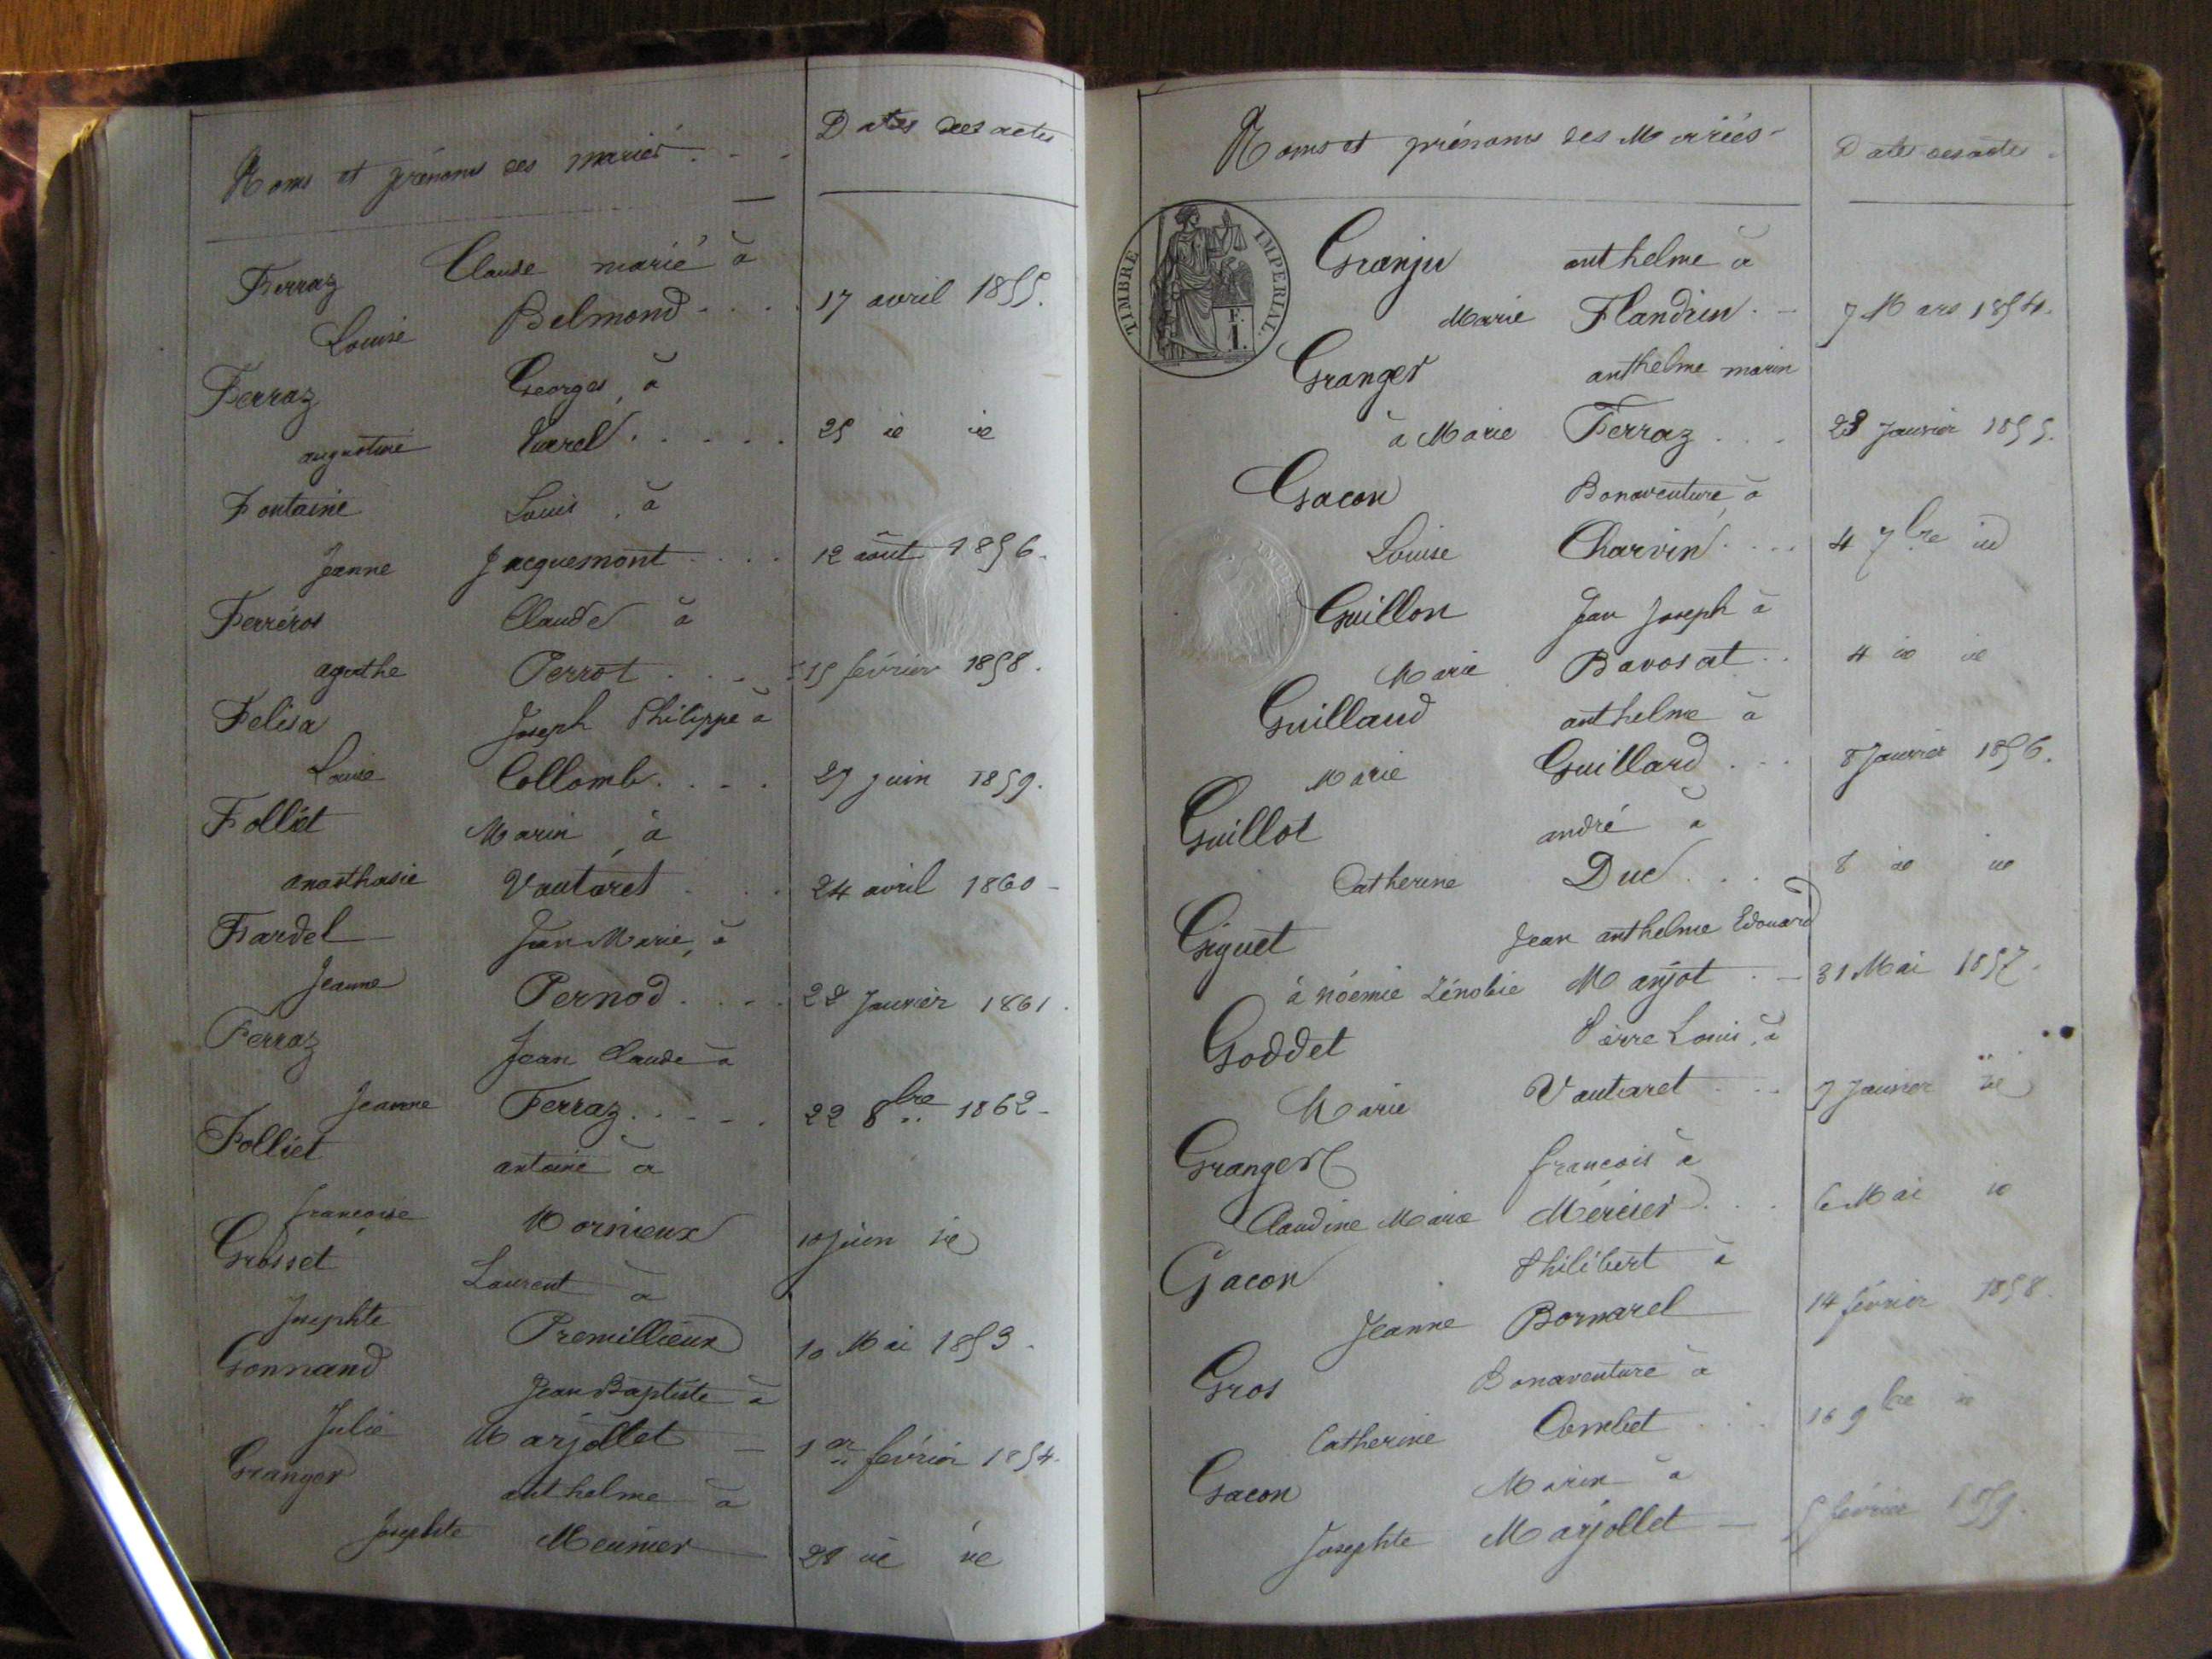 Noms et prénoms des mariés
Dates des actes
Ferraz Claude marié à
Louise Belmond 17 avril 1855.
Ferraz Georges, à
augustine 25 id id
Fontaine Louis, à
Jeanne Jacquemont 12 août 1856.
Ferréros Claude à
agathe Perrot 15 février 1858.
Felisa Joseph Philippe à
Louise Collomb 29 juin 1859.
Folliet Marin, à
anasthasie Vautaret 24 avril 1860
Fardel Jean Marie, à
Jeanne Pernod 28 Janvier 1861.
Ferraz Jean Claude à
Jeanne Ferraz 22 8bre 1862
Folliet antoine à
françoise Mornieux 10 juin id
Grosset Laurent à
Josephte Premillieux 10 Mai 1853.
Gonnand Jean Baptiste à
Julie Marjollet 1er février 1854.
Granger anthelme à
Josephte Meunier id id
Noms et prénoms des Mariés
Dates des actes
TIMBRE IMPERIAL.
F.
1.
Granju anthelme à
Marie Flandrin 7 Mars 1854.
Granger anthelme marin
à Marie Ferraz Janvier 1855.
Gacon Bonaventure, à
Louise Charvin 4 7bre id
Guillon Jean Joseph à
Marie Bavosat 4 id id
Guilland anthelme à
Marie Guillard 8 Janvier 1856.
Guillot andré à
Catherine Duc 8 id id
Giguet Jean anthelme Edouard
à Noémie Zénobie Marjot 31 Mai 1857.
Goddet Pierre Louis, à
Marie Vautaret 7 Janvier id
Granger françois à
Claudine Marie Mercier 6 Mai id
Gacon Philibert à
Jeanne Bornarel 14 février 1858.
Gros Bonaventure à
Catherine Combet 16 9bre id
Gacon Marin à
Josephte Marjollet 5 février 1859.